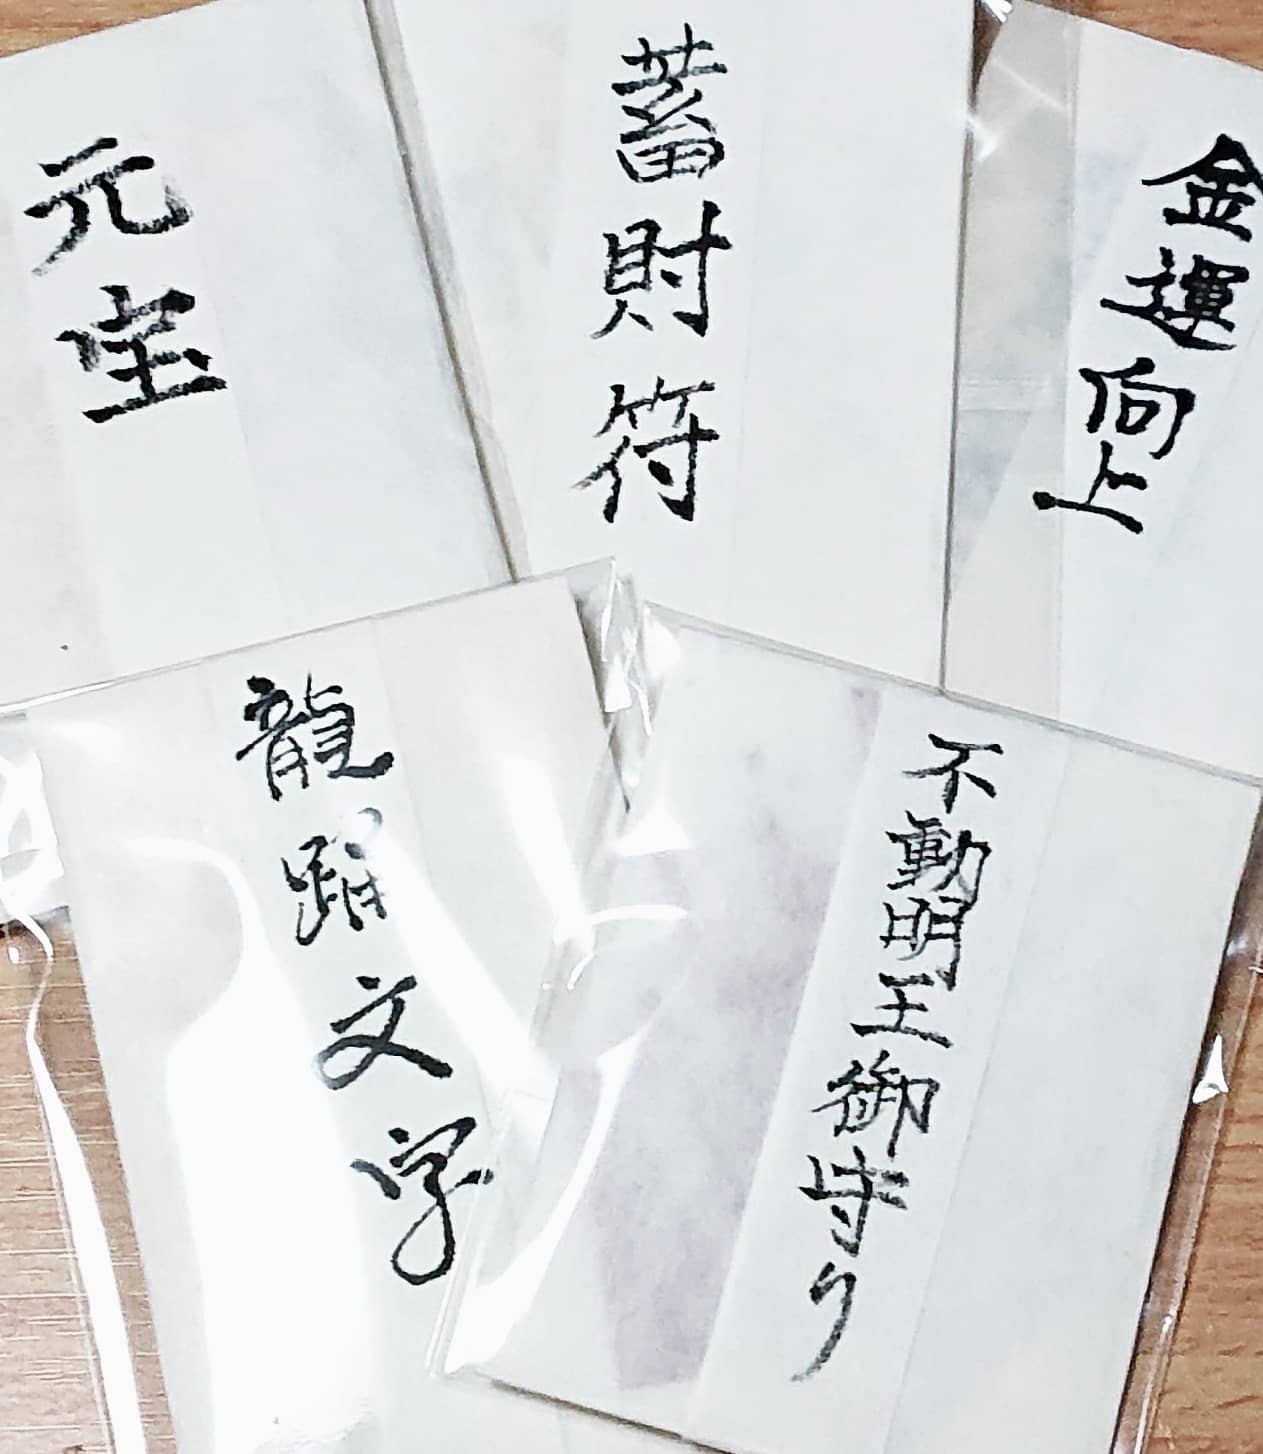 元宝
蓄財符
金運向上
龍踊文字
不動明王御守り